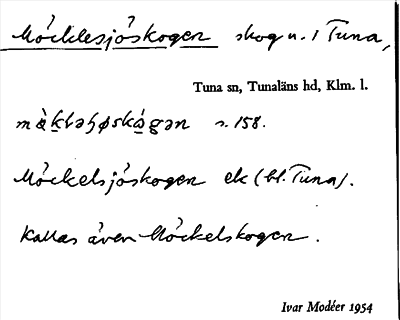 Möcklesjöskogen skog n. i Tuna,
Tuna sn, Tunaläns hd, Klm. l.
s. 158.
Möckelsjöskogen ek (bl. Tuna).
Kallas även Möckelskogen.
Ivar Modéer 1954